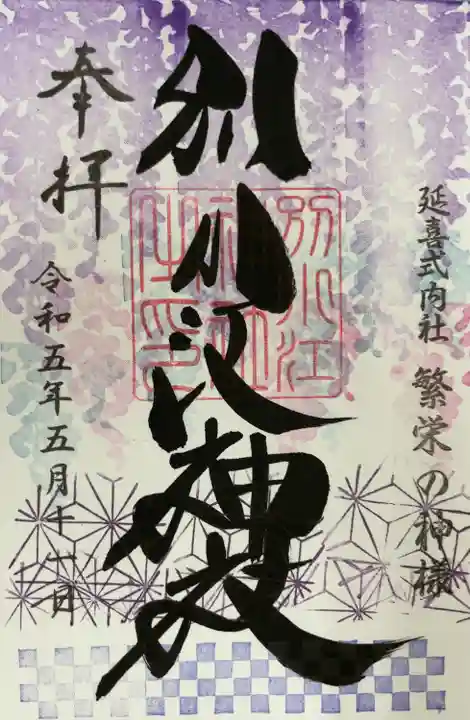 延喜式内社 繁栄の神様
別小江神社
別小江神社之印
奉拝
令和五年五月十一日